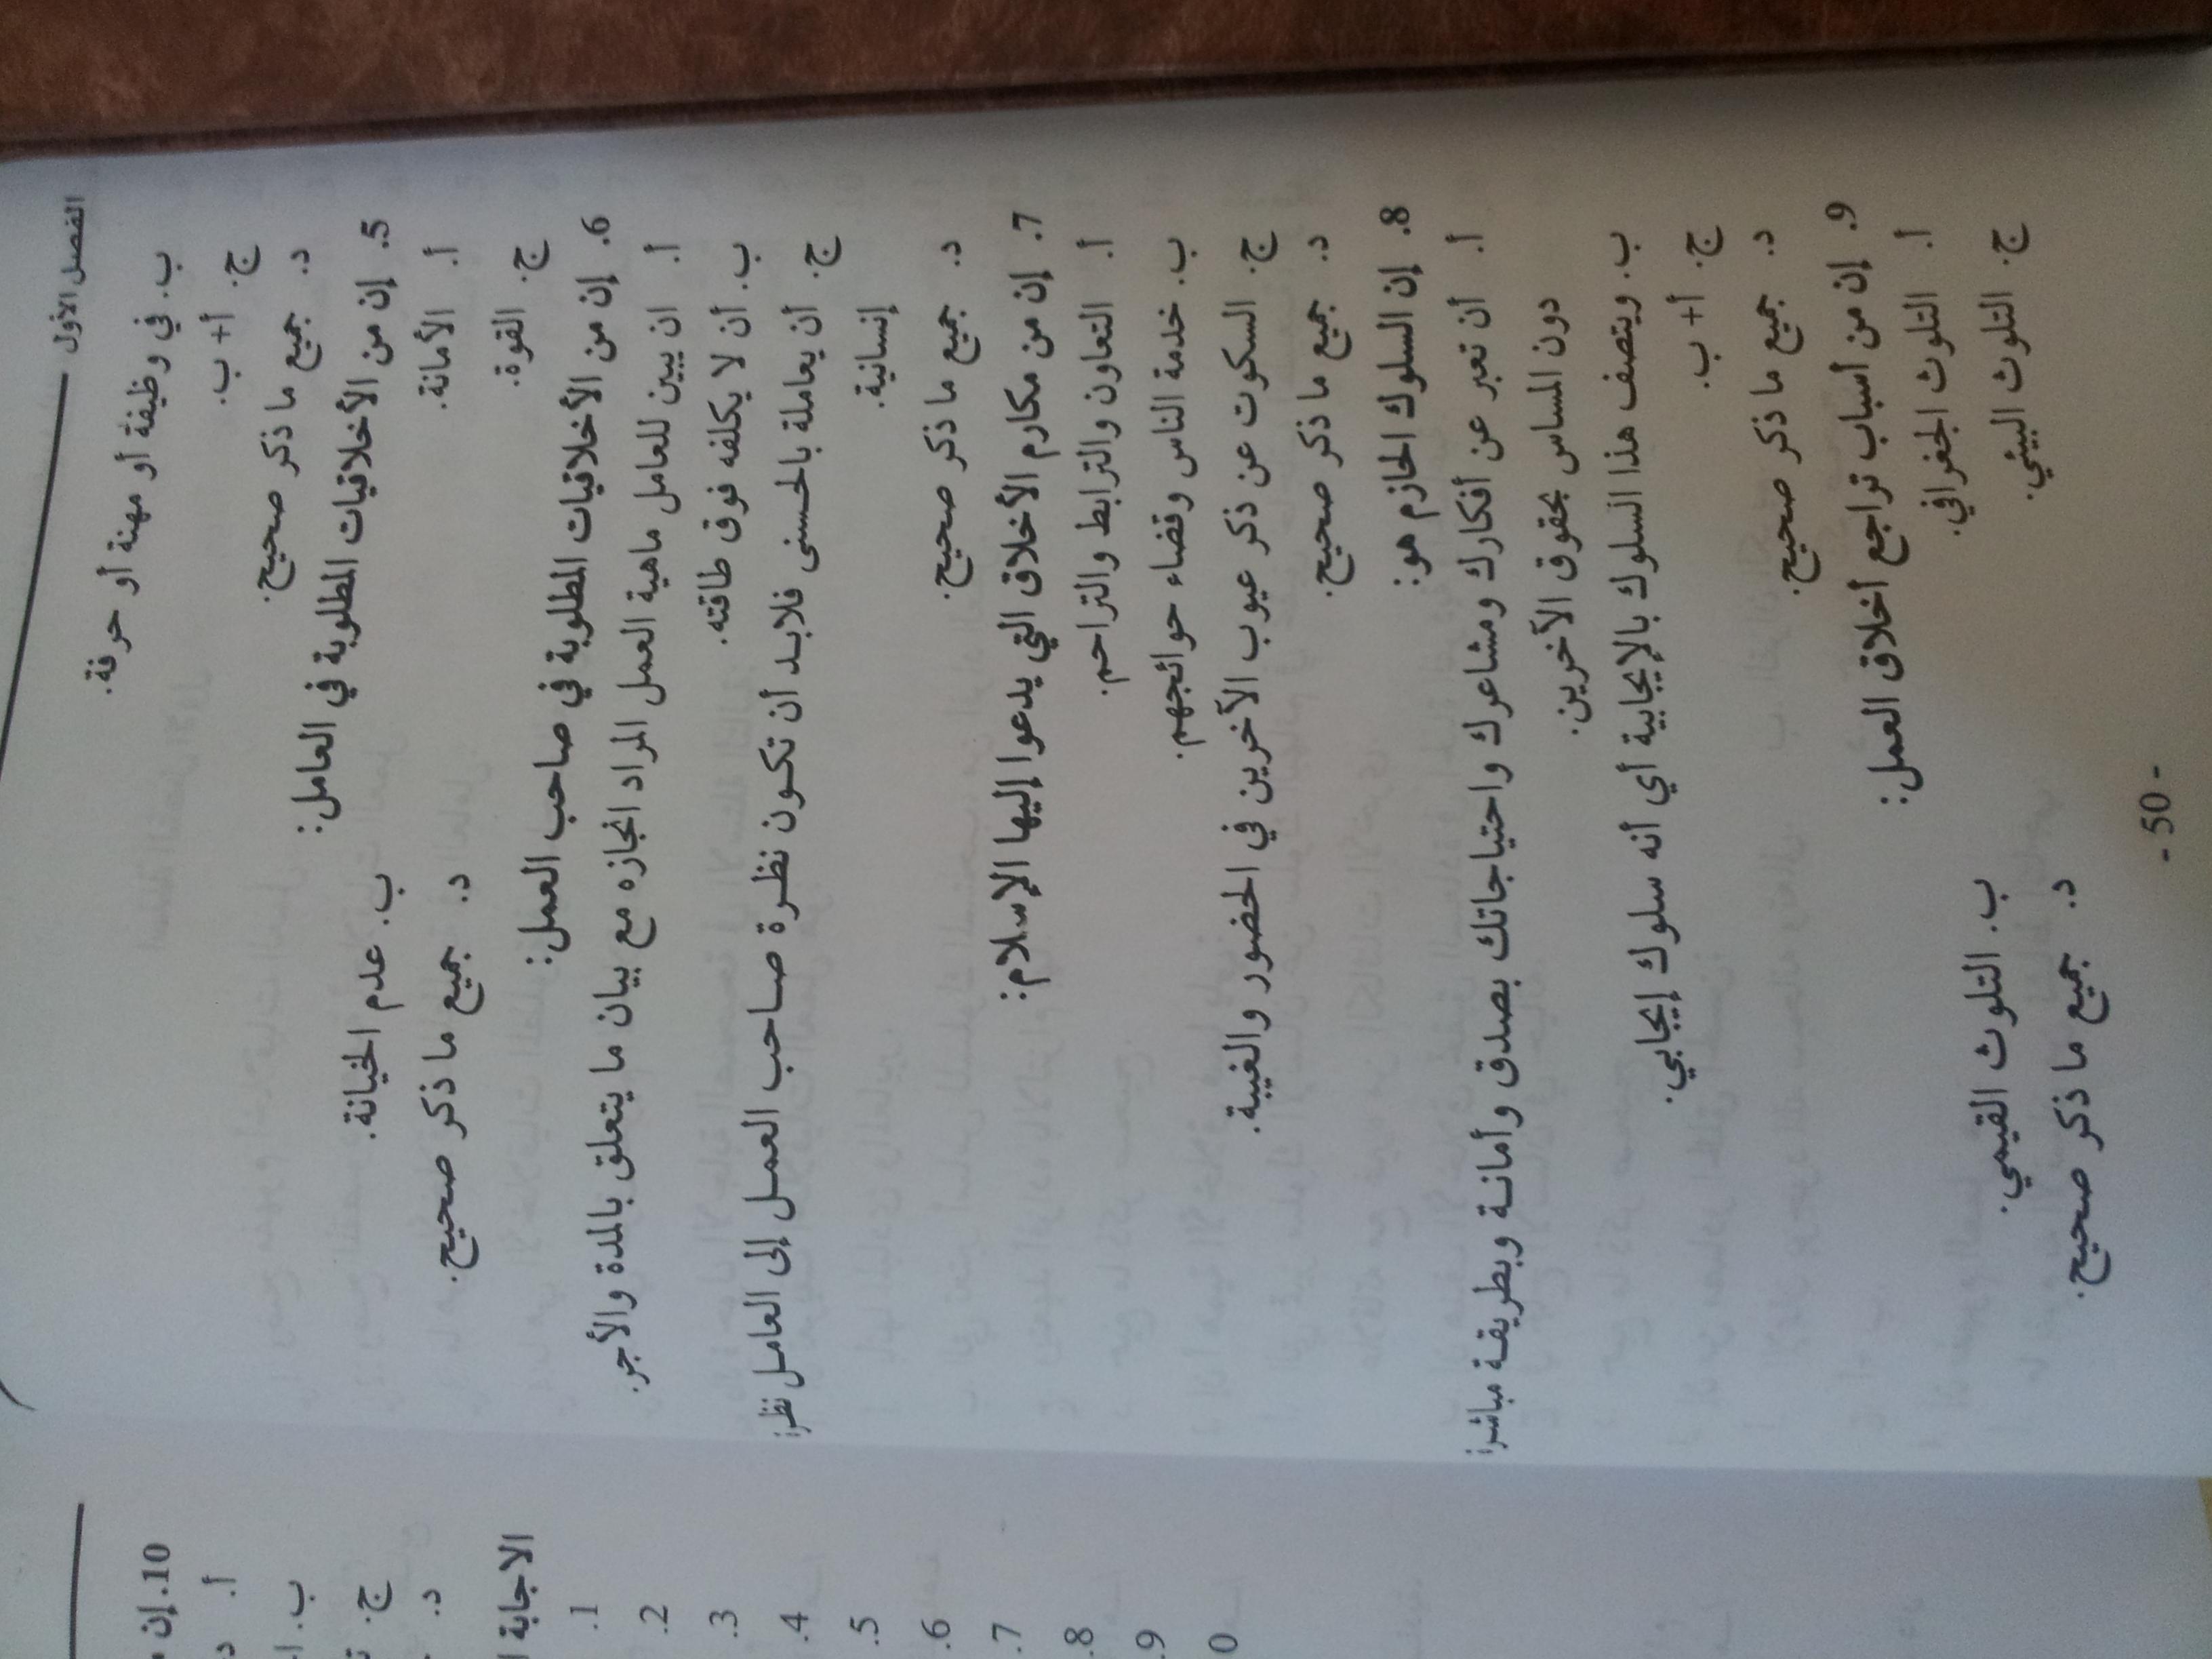 الفصل الأول
ب. في وظيفة أو مهنة أو حرفة.
ج. أ + ب.
د. جميع ما ذكر صحيح.
5. إن من الأخلاقيات المطلوبة في العامل:
أ. الأمانة. ب. عدم الخيانة.
ج. القوة. د. جميع ما ذكر صحيح.
6. إن من الأخلاقيات المطلوبة في صاحب العمل:
أ. ان يبين للعامل ماهية العمل المراد انجازه مع بيان ما يتعلق بالمدة والأجر.
ب. أن لا يكلفه فوق طاقته.
ج. أن يعاملة بالحسنى فلابد أن تكون نظرة صاحب العمل إلى العامل
إنسانية.
د. جميع ما ذكر صحيح.
7. إن من مكارم الأخلاق التي يدعوا إليها الإسلام:
أ. التعاون والترابط والتراحم.
ب. خدمة الناس وقضاء حوائجهم.
ج. السكوت عن ذكر عيوب الآخرين في الحضور والغيبة.
د. جميع ما ذكر صحيح.
8. إن السلوك الحازم هو:
أ. أن تعبر عن أفكارك ومشاعرك واحتياجاتك بصدق وأمانة وبطريقة
دون المساس بحقوق الآخرين.
ب. ويتصف هذا السلوك بالإيجابية أي أنه سلوك إيجابي.
ج. أ + ب.
د. جميع ما ذكر صحيح.
9. إن من أسباب تراجع أخلاق العمل:
أ. التلوث الجغرافي. ب. التلوث القيمي.
ج. التلوث البيئي. د. جميع ما ذكر صحيح.
- 50 -
10. إن
أ.
ب.
ج.
د.
الاجابة
1.
2.
3.
4.
5.
6.
7.
8.
9.
0